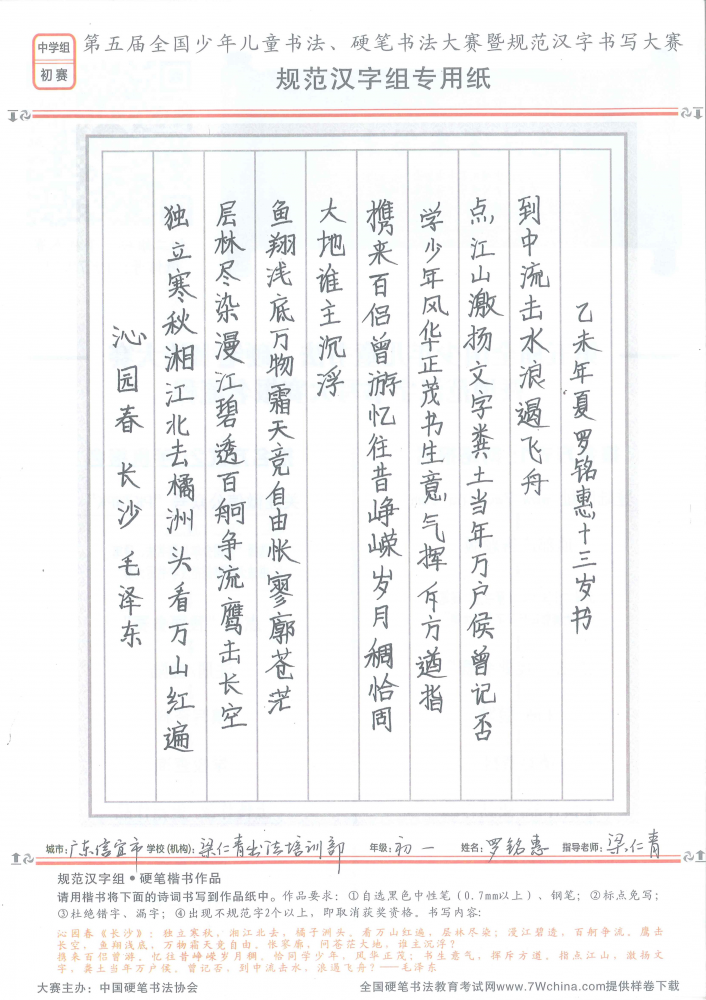 中学组
初赛
第五届全国少年儿童书法、硬笔书法大赛暨规范汉字书写大赛
规范汉字组专用纸
沁园春 长沙 毛泽东
独立寒秋湘江北去橘洲头看万山红遍
层林尽染漫江碧透百舸争流鹰击长空
鱼翔浅底万物霜天竞自由怅寥廓苍茫
大地谁主沉浮
携来百侣曾游忆往昔峥嵘岁月稠恰同
学少年风华正茂书生意气挥斥方遒指
点江山激扬文字粪土当年万户侯曾记否
到中流击水浪遏飞舟
乙未年夏罗铭惠十三岁书
城市：广东信宜市 学校(机构)：梁仁青书法培训部 年级：初一 姓名：罗铭惠 指导老师：梁仁青
规范汉字组●硬笔楷书作品
请用楷书将下面的诗词书写到作品纸中。作品要求：①自选黑色中性笔（0.7mm以上）、钢笔；②标点免写；
③杜绝错字、漏字；④出现不规范字2个以上，即取消获奖资格。书写内容：
沁园春《长沙》：独立寒秋，湘江北去，橘子洲头。看万山红遍，层林尽染；漫江碧透，百舸争流。鹰击
长空，鱼翔浅底，万物霜天竞自由。怅寥廓，问苍茫大地，谁主沉浮？
携来百侣曾游，忆往昔峥嵘岁月稠。恰同学少年，风华正茂；书生意气，挥斥方遒。指点江山，激扬文
字，粪土当年万户侯。曾记否，到中流击水，浪遏飞舟？——毛泽东
大赛主办：中国硬笔书法协会
全国硬笔书法教育考试网www.7Wchina.com提供样卷下载